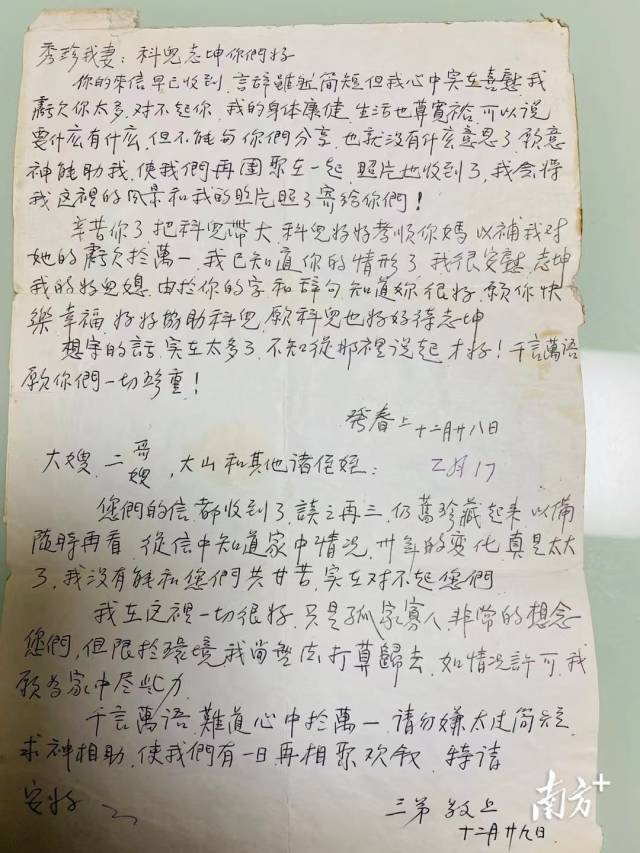 秀珍我妻：科兒志坤你們好
你的來信早已收到，言辞雖然简短但我心中实在喜慰 我
虧欠你太多，对不起你，我的身体康健，生活也算寬裕，可以说
要什么有什么，但不能与你們分享，也就没有什么意思了，願意
神能助我，使我們再團聚在一起，照片也收到了，我会将
我这裡的风景和我的照片照了寄給你們！
辛苦你了把科兒帶大，科兒好好孝順你媽以補我对
她的虧欠於萬一，我已知道你的情形了，我很安慰，志坤
我的好兒媳，由於你的字和辞句，知道妳很好，願你快
樂幸福，好好協助科兒，願科兒也好好待志坤
想寫的話，实在太多了，不知從那裡说起才好！千言萬語
願你們一切珍重！
春上 十二月廿八日
大嫂，二哥嫂，大山和其他诸侄姪：
2月17
您們的信都收到了，談之再三，仍舊珍藏起来以備
随時再看，從信中知道家中情況，卅年的变化，真是太大
了，我没有能和您們共甘苦，实在对不起您們
我在这裡一切很好，只是孤家寡人，非常的想念
您們，但限於環境，我尚無法打算歸去，如情況許可，我
願为家中尽些力，
千言萬語，難道心中於萬一，请勿嫌太过简短，
求神相助，使我們有一日再相聚欢叙，特请
安好
三弟 敬上
十二月廿九日
南方+